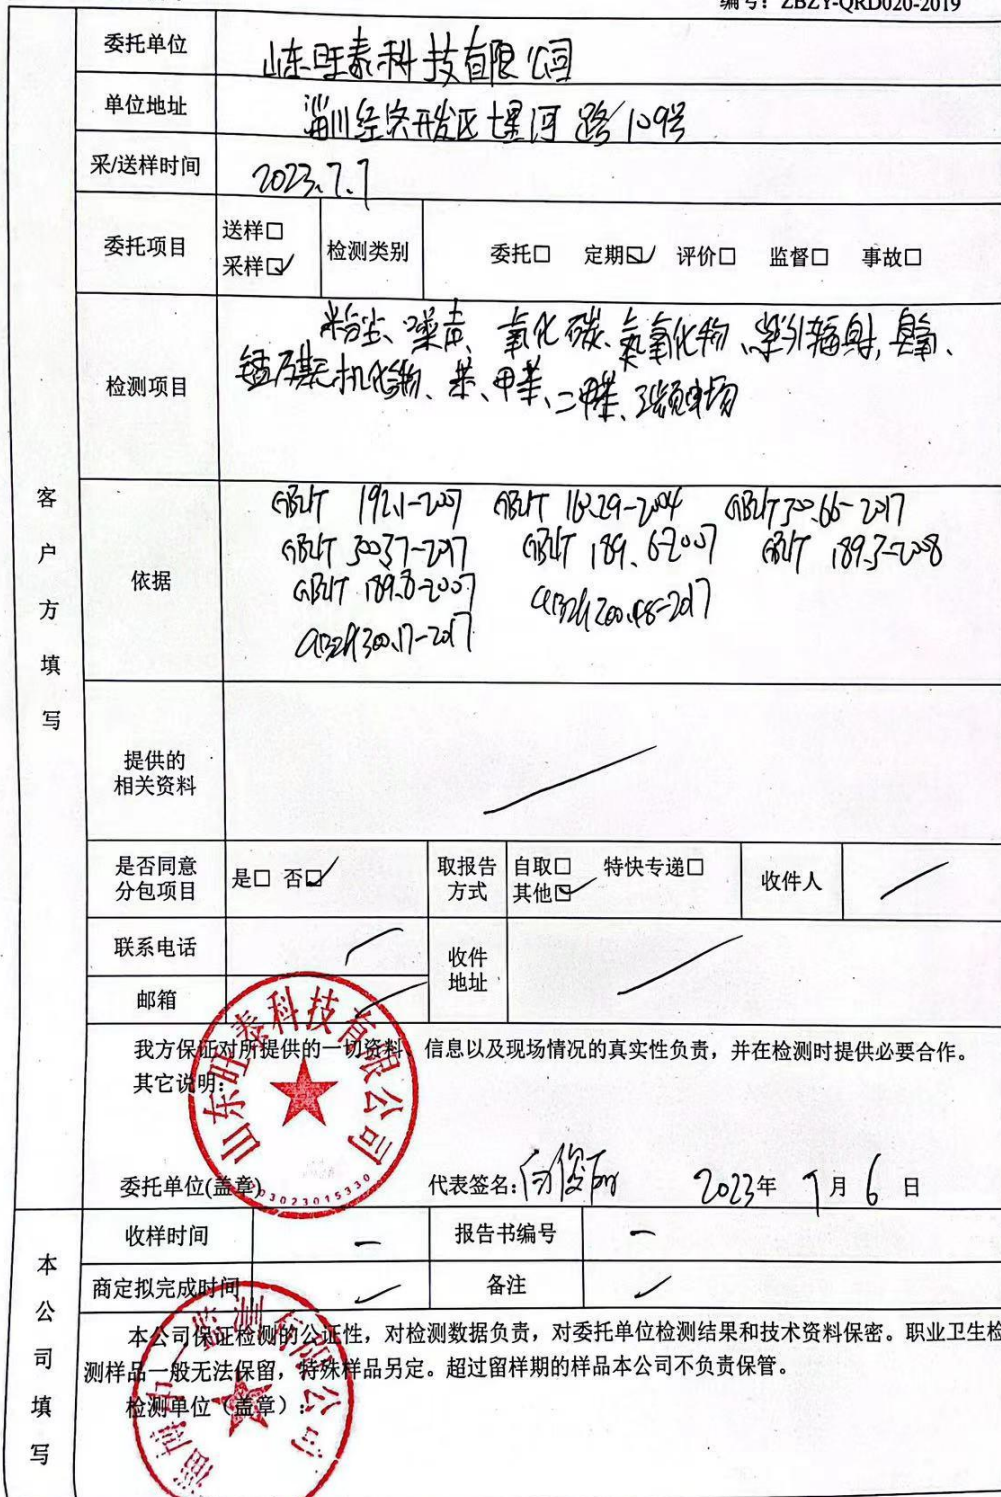 编号：ZBZY-QRD020-2019
委托单位 山东旺泰科技有限公司
单位地址 淄川经济开发区七星河路109号
采/送样时间 2023.7.7
委托项目 送样□ 采样☑ 检测类别 委托□ 定期☑ 评价□ 监督□ 事故□
检测项目 粉尘、噪声、一氧化碳、氮氧化物、紫外辐射、臭氧、
锰及其无机化物、苯、甲苯、二甲苯、工频电场
依据 GBZ/T 192.1-2007 GBZ/T 160.29-2004 GBZ/T 300.66-2017
GBZ/T 300.37-2017 GBZ/T 189.6-2007 GBZ/T 189.3-2008
GBZ/T 189.8-2007 GBZ/T 300.48-2017
GBZ/T 300.17-2017
客户方填写
提供的
相关资料
是否同意
分包项目 是□ 否☑ 取报告
方式 自取□ 特快专递□
其他☑ 收件人
联系电话 收件
地址
邮箱
我方保证对所提供的一切资料、信息以及现场情况的真实性负责，并在检测时提供必要合作。
其它说明：
山东旺泰科技有限公司
703023015330
委托单位(盖章) 代表签名： 2023年 7月 6日
本公司填写
收样时间 一 报告书编号 一
商定拟完成时间 备注
本公司保证检测的公证性，对检测数据负责，对委托单位检测结果和技术资料保密。职业卫生检
测样品一般无法保留，特殊样品另定。超过留样期的样品本公司不负责保管。
检测单位（盖章）：